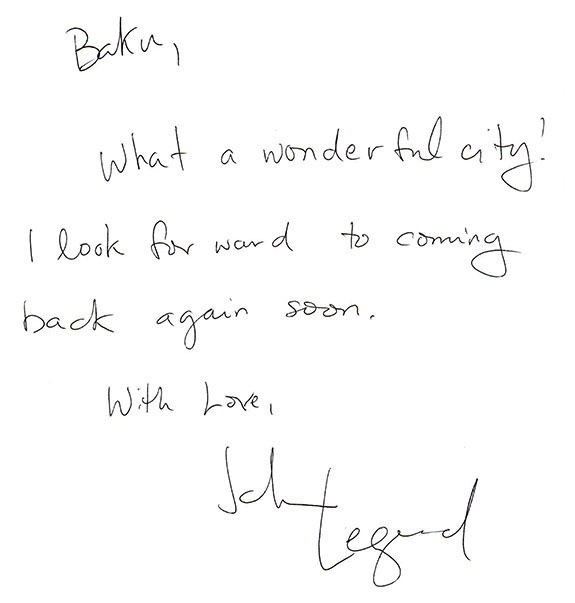 Baku,
What a wonderful city!
I look forward to coming
back again soon.
With Love,
John Legend